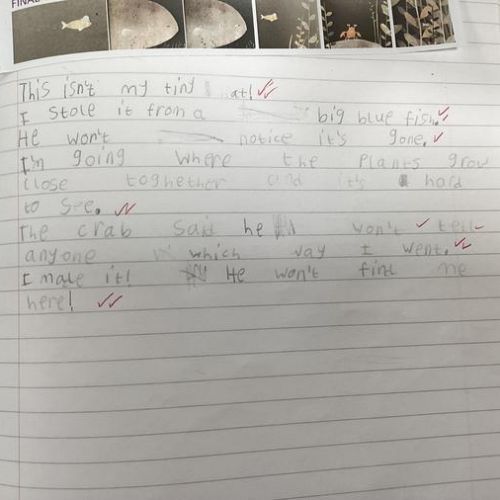 FINAL
This isn't my tiny at!
I stole it from a big blue fish.
He won't notice it's gone.
I'm going where the plants grow
close toghether and it's hard
to see.
The crab said he won't tell
anyone which way I went.
I made it! He won't find me
here!